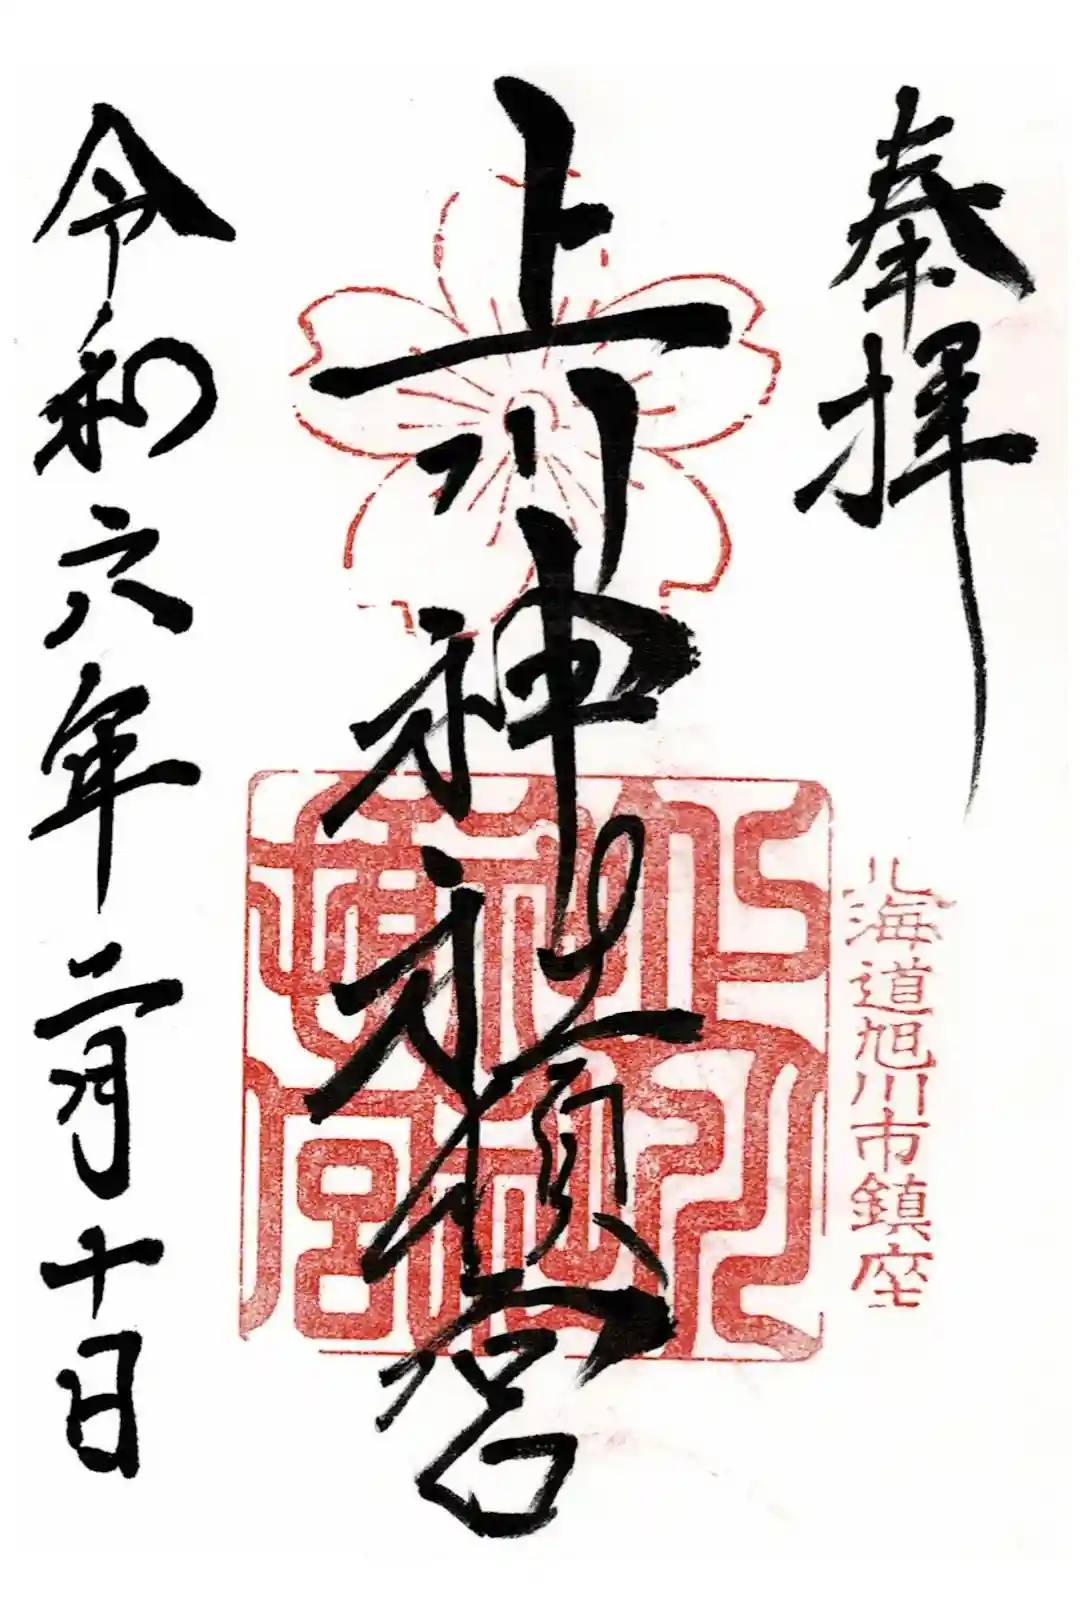 奉拝
北海道旭川市鎮座
上川神社頓宮
令和六年二月十日